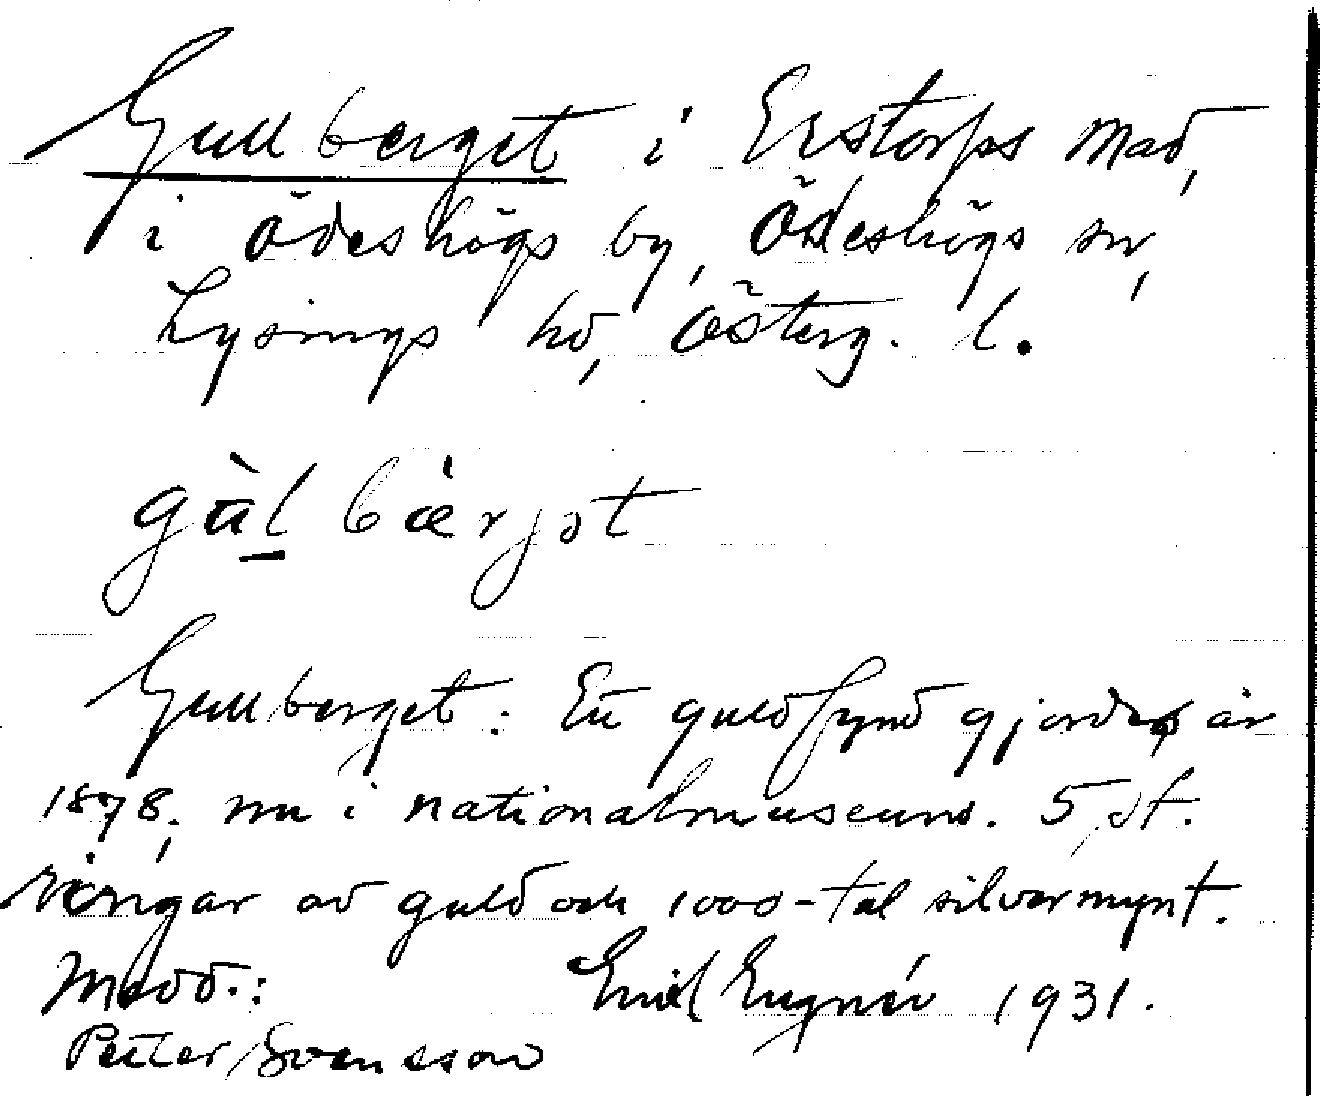 Gullberget i Erstorps mad,
i Ödeshögs by, Ödeshögs sn,
Lysings hd, Österg. l.
gùl bærjət
Gullberget: Ett guldfynd gjordes år
1878, nu i nationalmuseum. 5 st.
ringar av guld och 1000-tal silvermynt.
Medd.: Emil 1931.
Petter Svensson